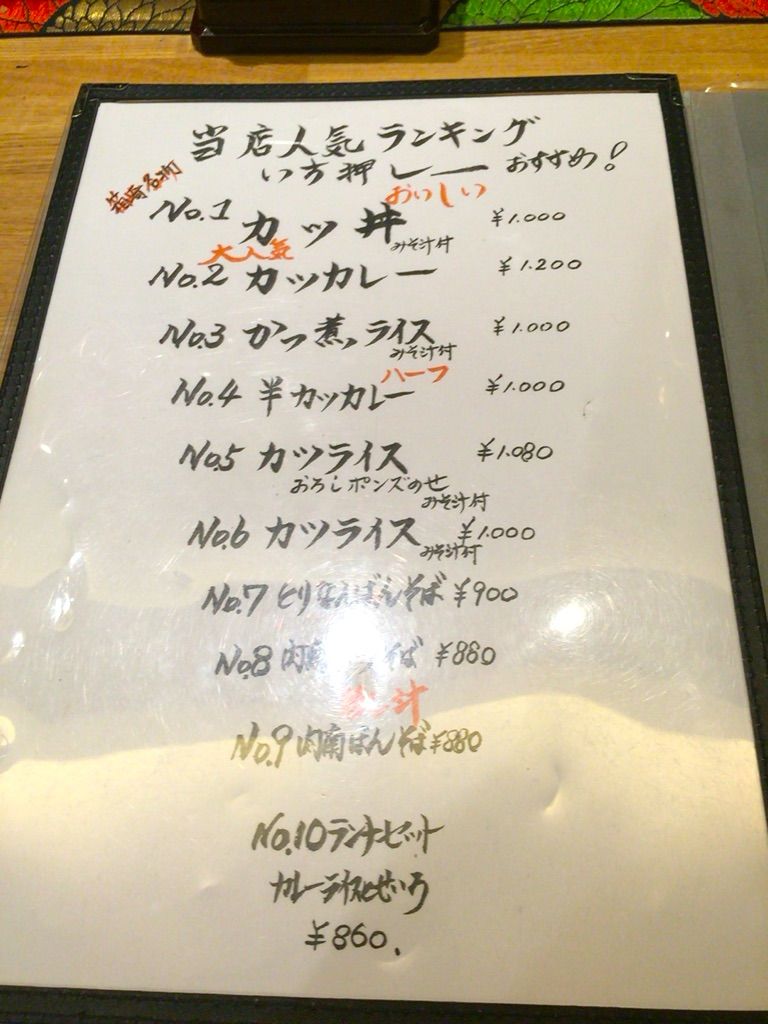 当店人気ランキング
い方押しー おすすめ！
箱崎名物
おいしい
No.1 カツ丼 ¥1.000
みそ汁付
大人気
No.2 カツカレー ¥1.200
No.3 かつ煮ライス ¥1.000
みそ汁付
ハーフ
No.4 半カツカレー ¥1.000
No.5 カツライス ¥1.080
おろしポンズのせ
みそ汁付
No.6 カツライス ¥1.000
みそ汁付
No.7 とりなんばんそば ¥900
No.8 肉 そば ¥880
汁
No.9 肉南ばんそば ¥880
No.10 ランチセット
カレーライスとせいろ
¥860.